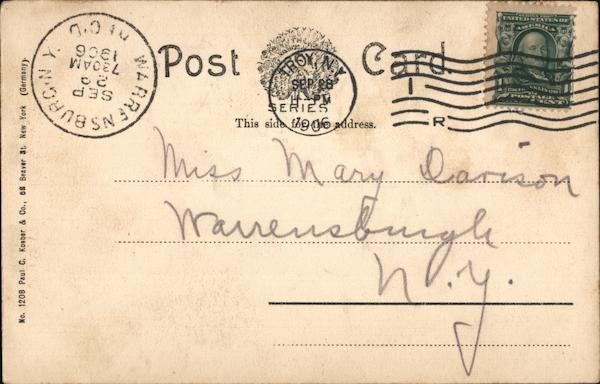 WARRENSBURGH N.Y.
SEP
29
7 30 AM
1906
REC'D.
Post Card
TROY, N.Y.
SEP 28
PM
1906
SERIES
UNITED STATES OF
AMERICA
I R
This side for the address.
Miss Mary Davison
Warrensburgh
N.Y.
No. 1208 Paul C. Koeber & Co., 68 Beaver St. New York (Germany).